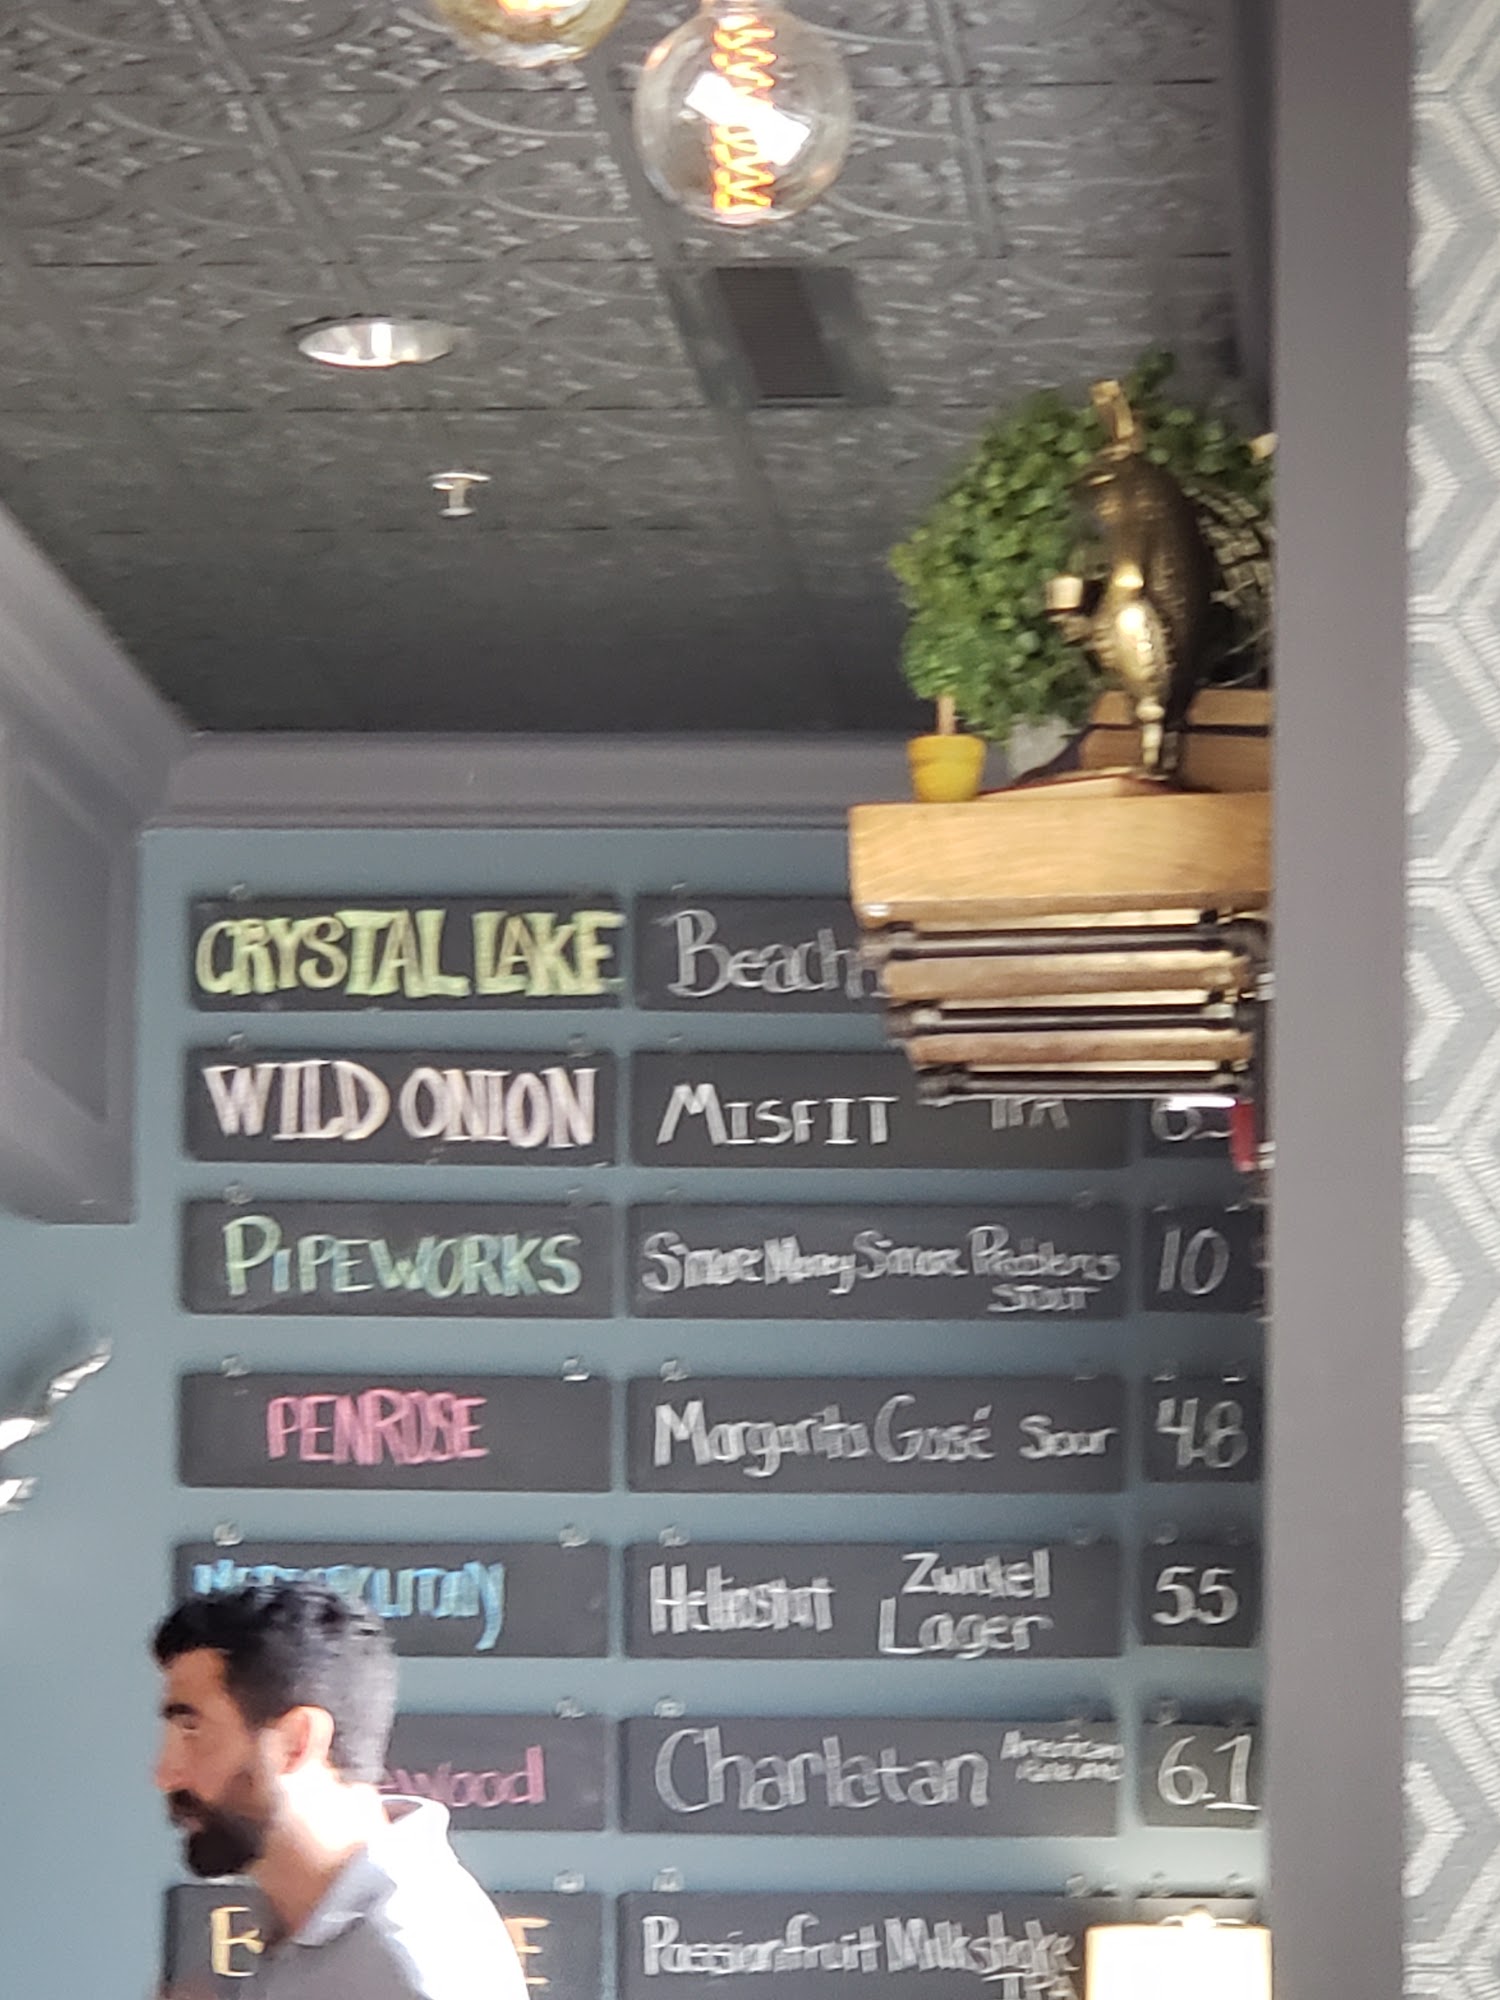 CRYSTAL LAKE Beach
WILD ONION MISFIT IPA
PIPEWORKS Smore Money Smore Problems 10
STOUT
PENROSE Margarita Gosé Sour 48
Heliostat Zwickel 55
Lager
wood Charlatan American 61
Passionfruit Milkshake
IPA